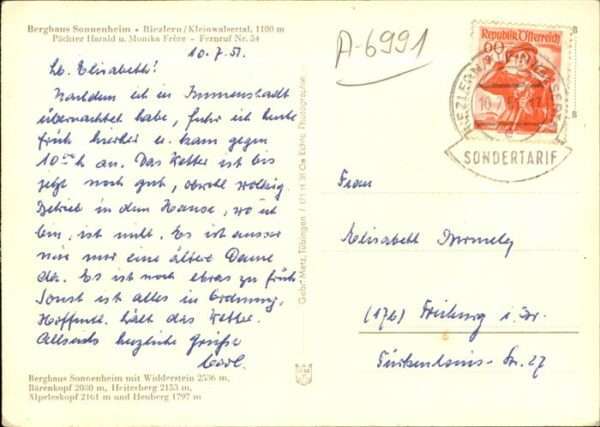 Berghaus Sonnenheim • Riezlern/Kleinwalsertal, 1100 m
Pächter Harald u. Monika Frère - Fernruf Nr. 54
10.7.51.
Lb. Elisabeth!
Nachdem ich in Immenstadt
übernachtet habe, fuhr ich heute
früh hierher u. kam gegen
10 h an. Das Wetter ist bis
jetzt noch gut, obwohl wolkig.
Betrieb in dem Hause, wo ich
bin, ist nicht. Es ist ausser
mir nur eine ältere Dame
da. Es ist noch etwas zu früh.
Sonst ist alles in Ordnung.
Hoffentl. hält das Wetter.
Allseits herzliche Grüße
Berghaus Sonnenheim mit Widderstein 2536 m,
Bärenkopf 2080 m, Heiterberg 2153 m,
Älpeleskopf 2161 m und Heuberg 1797 m
Gebr. Metz, Tübingen
Echte Photographie
A-6991
Republik Österreich
60
RIEZLERN
10.7.51
SONDERTARIF
B
B
Frau
Elisabeth
(17b) Freiburg i. Br.
Türkenlouis-Str. 27